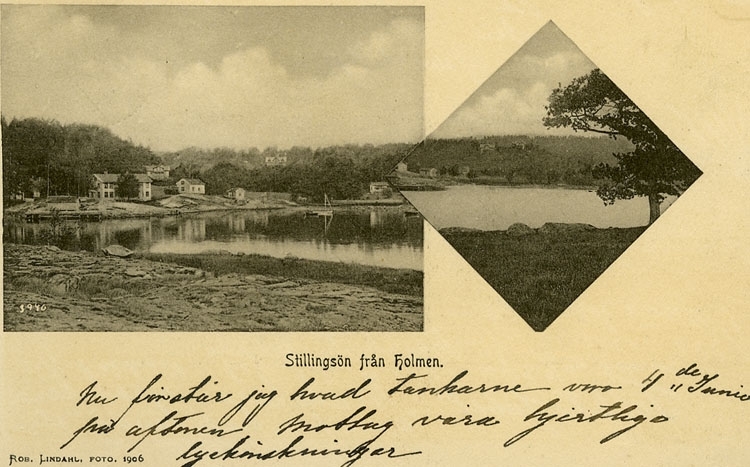 3946
Stillingsön från Holmen.
Nu förstår jag hvad tankarne voro 4 de Junie
på aftonen Mottag våra hjertliga
lyckönskningar
ROB. LINDAHL, FOTO. 1906